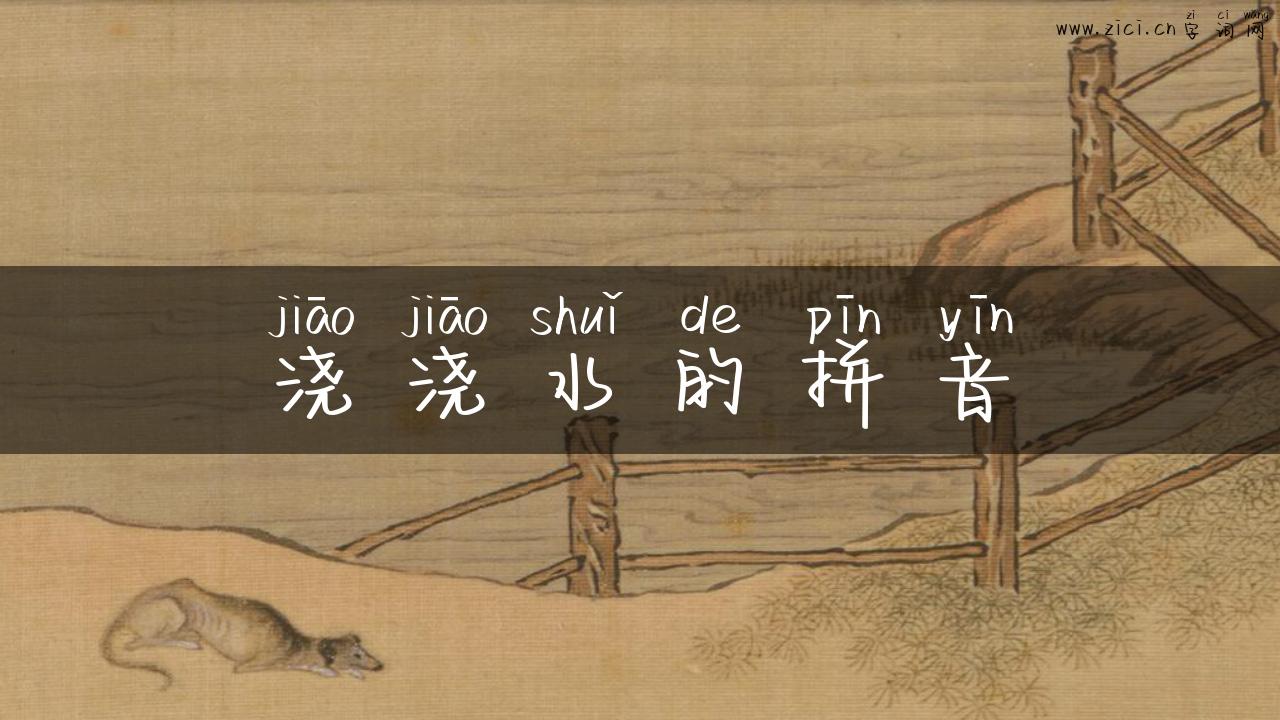 zi ci wang
www.zici.cn 字词网
jiāo jiāo shuǐ de pīn yīn
浇浇水的拼音